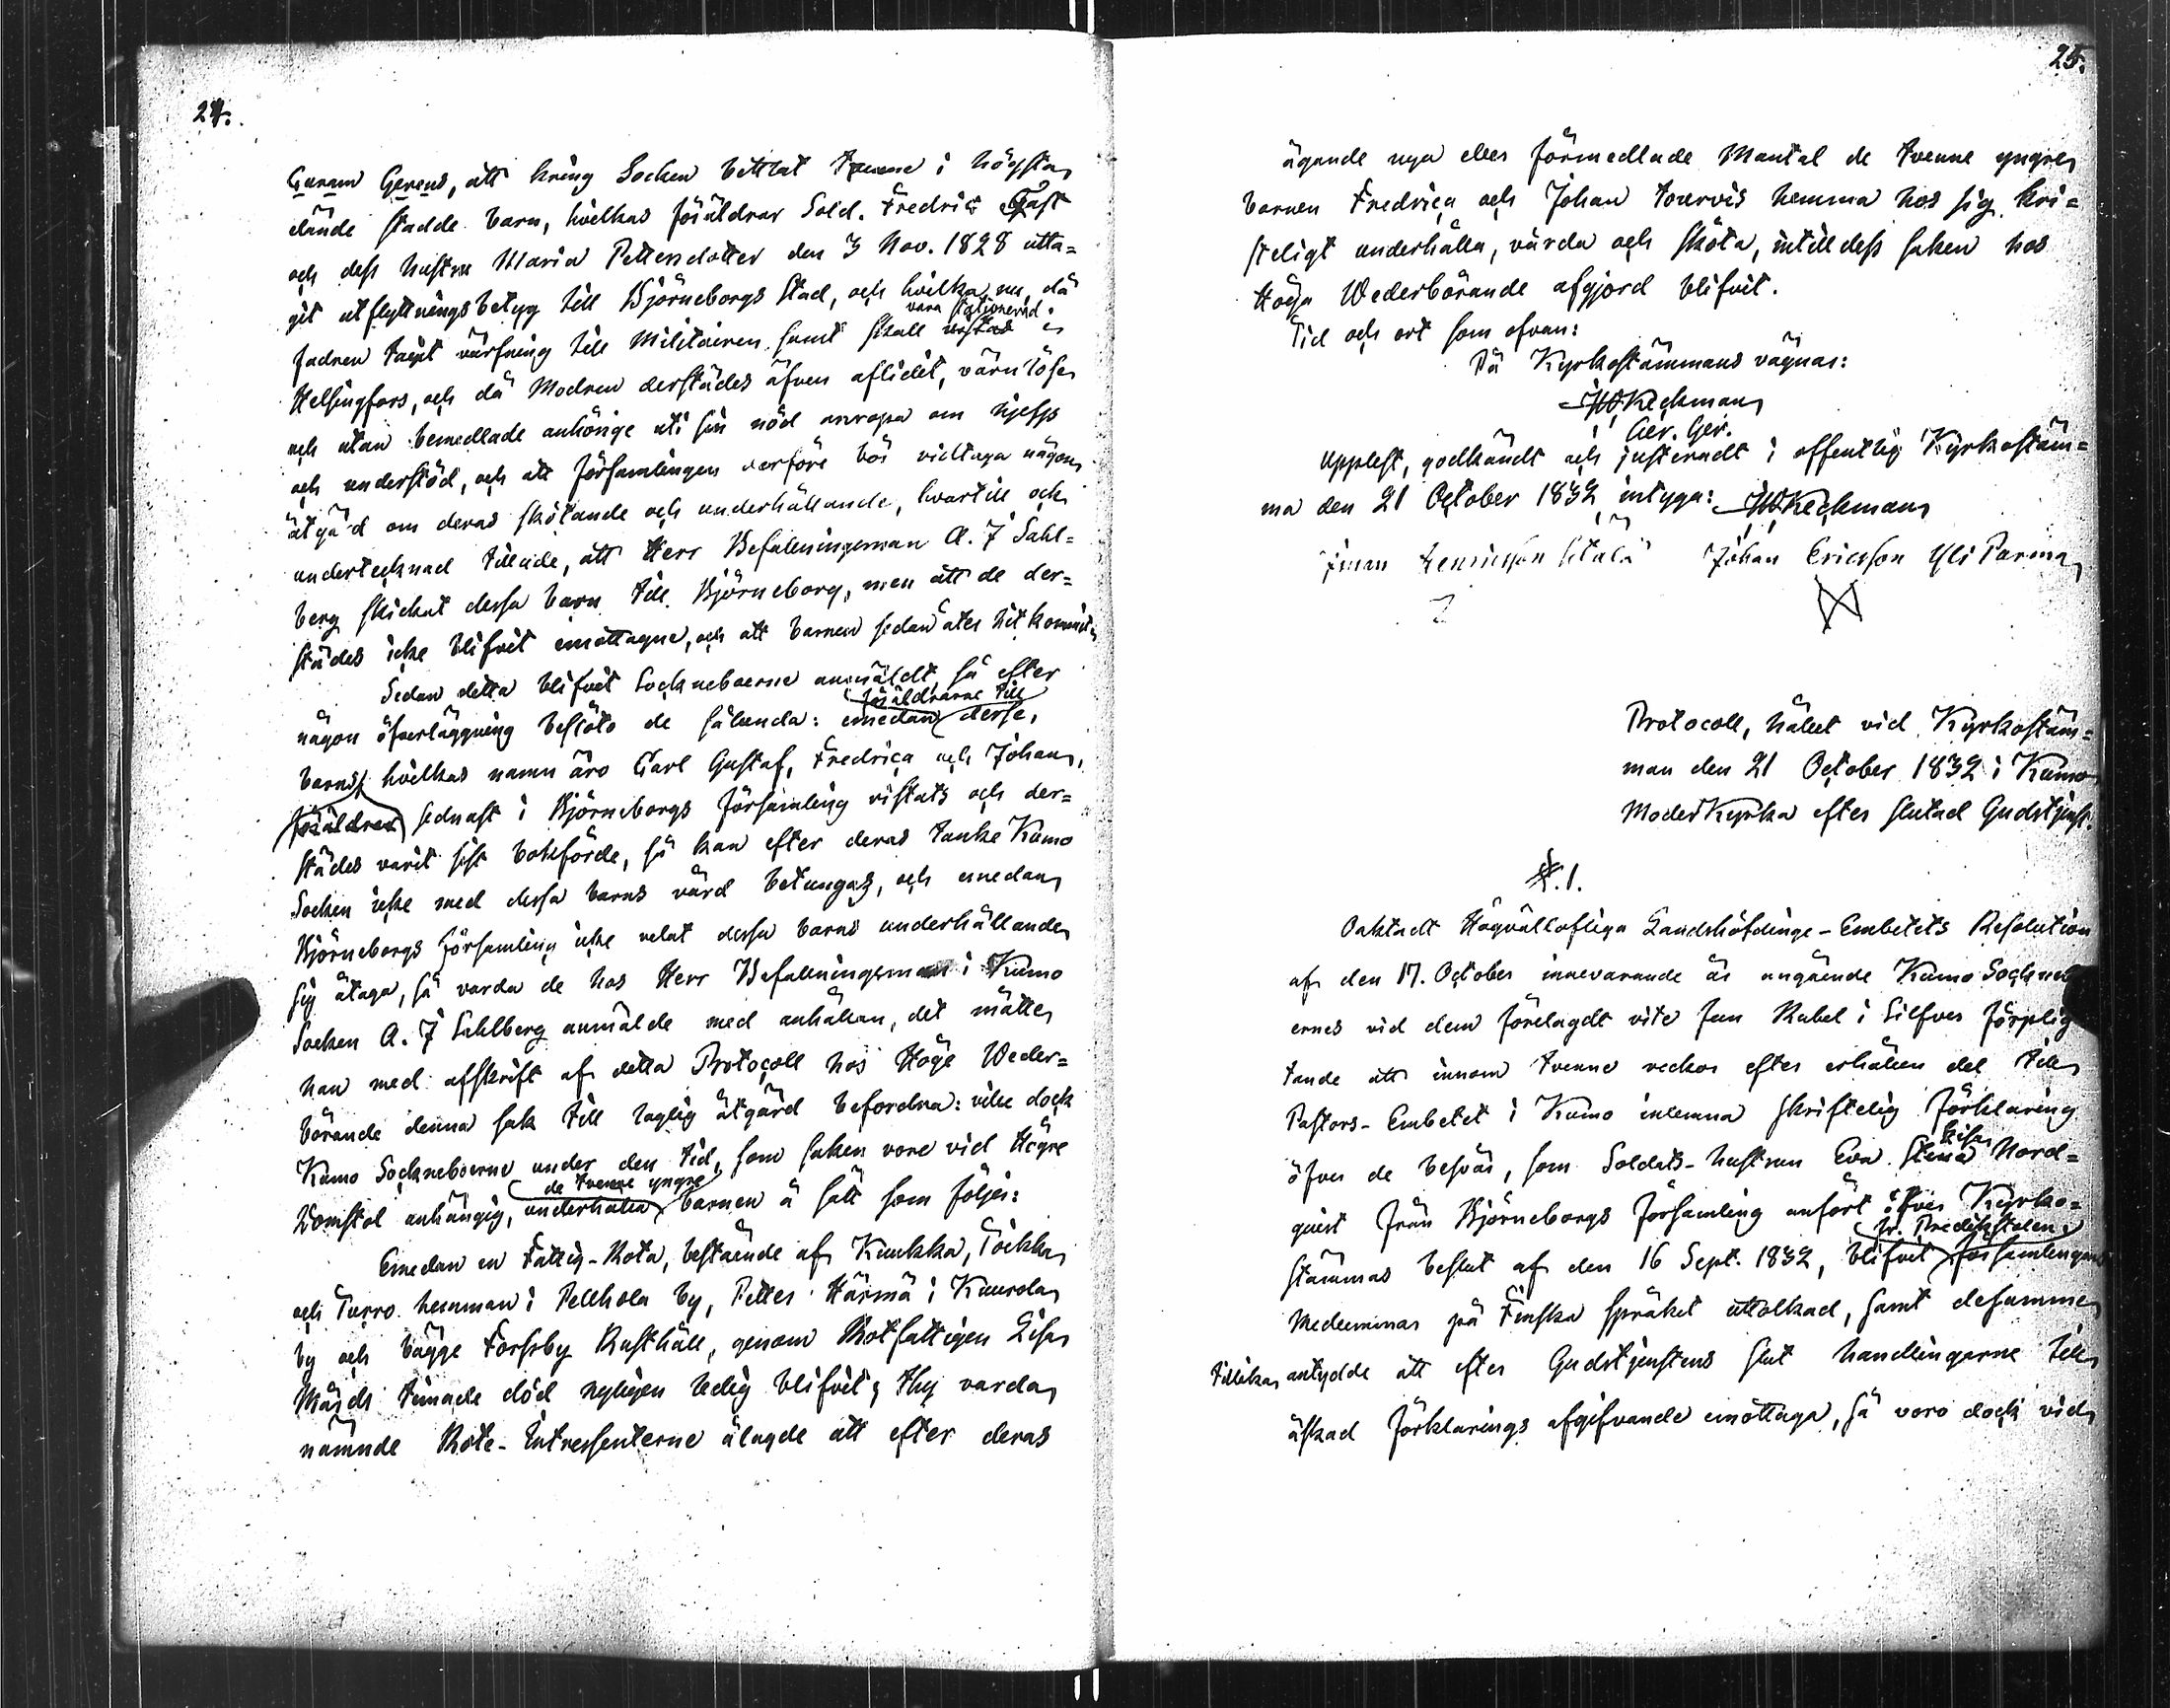 24.
Curam Gerens, att kring Socken bettlat trenne i högsta
elände stadde barn, hvilkas föräldrar Sold. Fredric Gast
och dess hustru Maria Pettersdotter den 3 Nov. 1828 utta=
git utflyttningsbetyg till Björneborgs stad, och hvilka nu, då
vara stationerad
fadren tagit värfning till Militairen samt skall vistas i
Helsingfors, och då Modren derstädes äfven aflidit, värnlöse
och utan bemedlade anhörige uti sin nöd anropa om hjelp
och understöd, och att församlingen derföre bör vidtaga någon
åtgärd om deras skötande och underhållande, hvartill och
undertecknad tillade, att Herr Befallningsman A. J Sahl=
berg skickat dessa barn till Björneborg, men att de der=
städes icke blifvit emottagne, och att barnen sedan åter hit kommit.
Sedan detta blifvit Sockneboerne anmäldt, så efter
föräldrarne till
någon öfverläggning beslöto de sålunda: emedan desse,
barns, hvilkas namn äro Carl Gustaf, Fredrica och Johan,
föräldrar sednast i Björneborgs församling vistats och der=
städes varit sist bokförde, så kan efter deras tanke Kumo
Socken icke med dessa barns vård betungas, och emedan
Björneborgs församling icke velat dessa barns underhållande
sig åtaga, så varda de hos Herr Befallningsman i Kumo
Socken A. J Sahlberg anmälde med anhållan, det måtte
han med afskrift af detta Protocoll hos Höge Weder=
börande denna sak till laglig åtgärd befordra: vilse dock
Kumo Sockneboerne under den tid, som saken vore vid Högre
de tvenne yngre
Domstol anhängig, underhålla barnen å sätt som följer:
Emedan en Fattig-Rota, bestående af Kuukka, Tockka
och Turro hemman i Pellhola by, Petter Härmä i Kuurola
by och bägge Forssby Rusthåll, genom Rotfattigen Lisa
Mårds timade död nyligen ledig blifvit; thy varda
nämnde Rote-Intressenterne ålagde att efter deras
25.
ägande nya eller förmedlade Mantal de tvenne yngre
barnen Fredrica och Johan tourvis hemma hos sig kri=
steligt underhålla, vårda och sköta, intill dess saken hos
Höga Wederbörande afgjord blifvit.
Tid och ort som ofvan:
På Kyrkostämmans vägnar:
JW Keckman
Cur. Ger.
Upplest, godkändt och justeradt i offentlig Kyrkostäm=
ma den 21 October 1832, intyga: JW Keckman
Henricsson Johan Ericsson Yli Parma
Protocoll, hållet vid Kyrkostäm=
man den 21 October 1832 i Kumo
Moderkyrka efter slutad Gudstjenst.
§. 1.
Oaktadt Högvällofliga Landshöfdinge-Embetets Resolution
af den 17. October innevarande år angående Kumo Sockneb
ernes vid dem förelagdt vite fem Rubel i Silfver förplig
tande att innom tvenne veckor efter erhållen del till
Pastors-Embetet i Kumo inlemna skriftelig förklaring
Lisa
öfver de besvär, som Soldats-hustrun Eva Stina Nord=
quist från Björneborgs församling anfört öfver Kyrko=
fr. Predikstolen
stämmas beslut af den 16 Sept. 1832, blifvit församlingens
Medlemmar på Finska språket uttolkad, samt desamme
tillika antydde att efter Gudstjenstens slut handlingarne till
äskad förklarings afgifvande emottaga, så voro dock vid